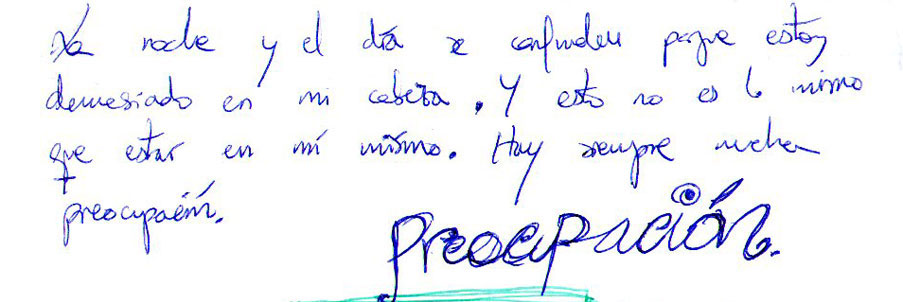 La noche y el día se confunden porque estoy
demasiado en mi cabeza. Y esto no es lo mismo
que estar en mí mismo. Hay siempre mucha
preocupación.
preocupación.